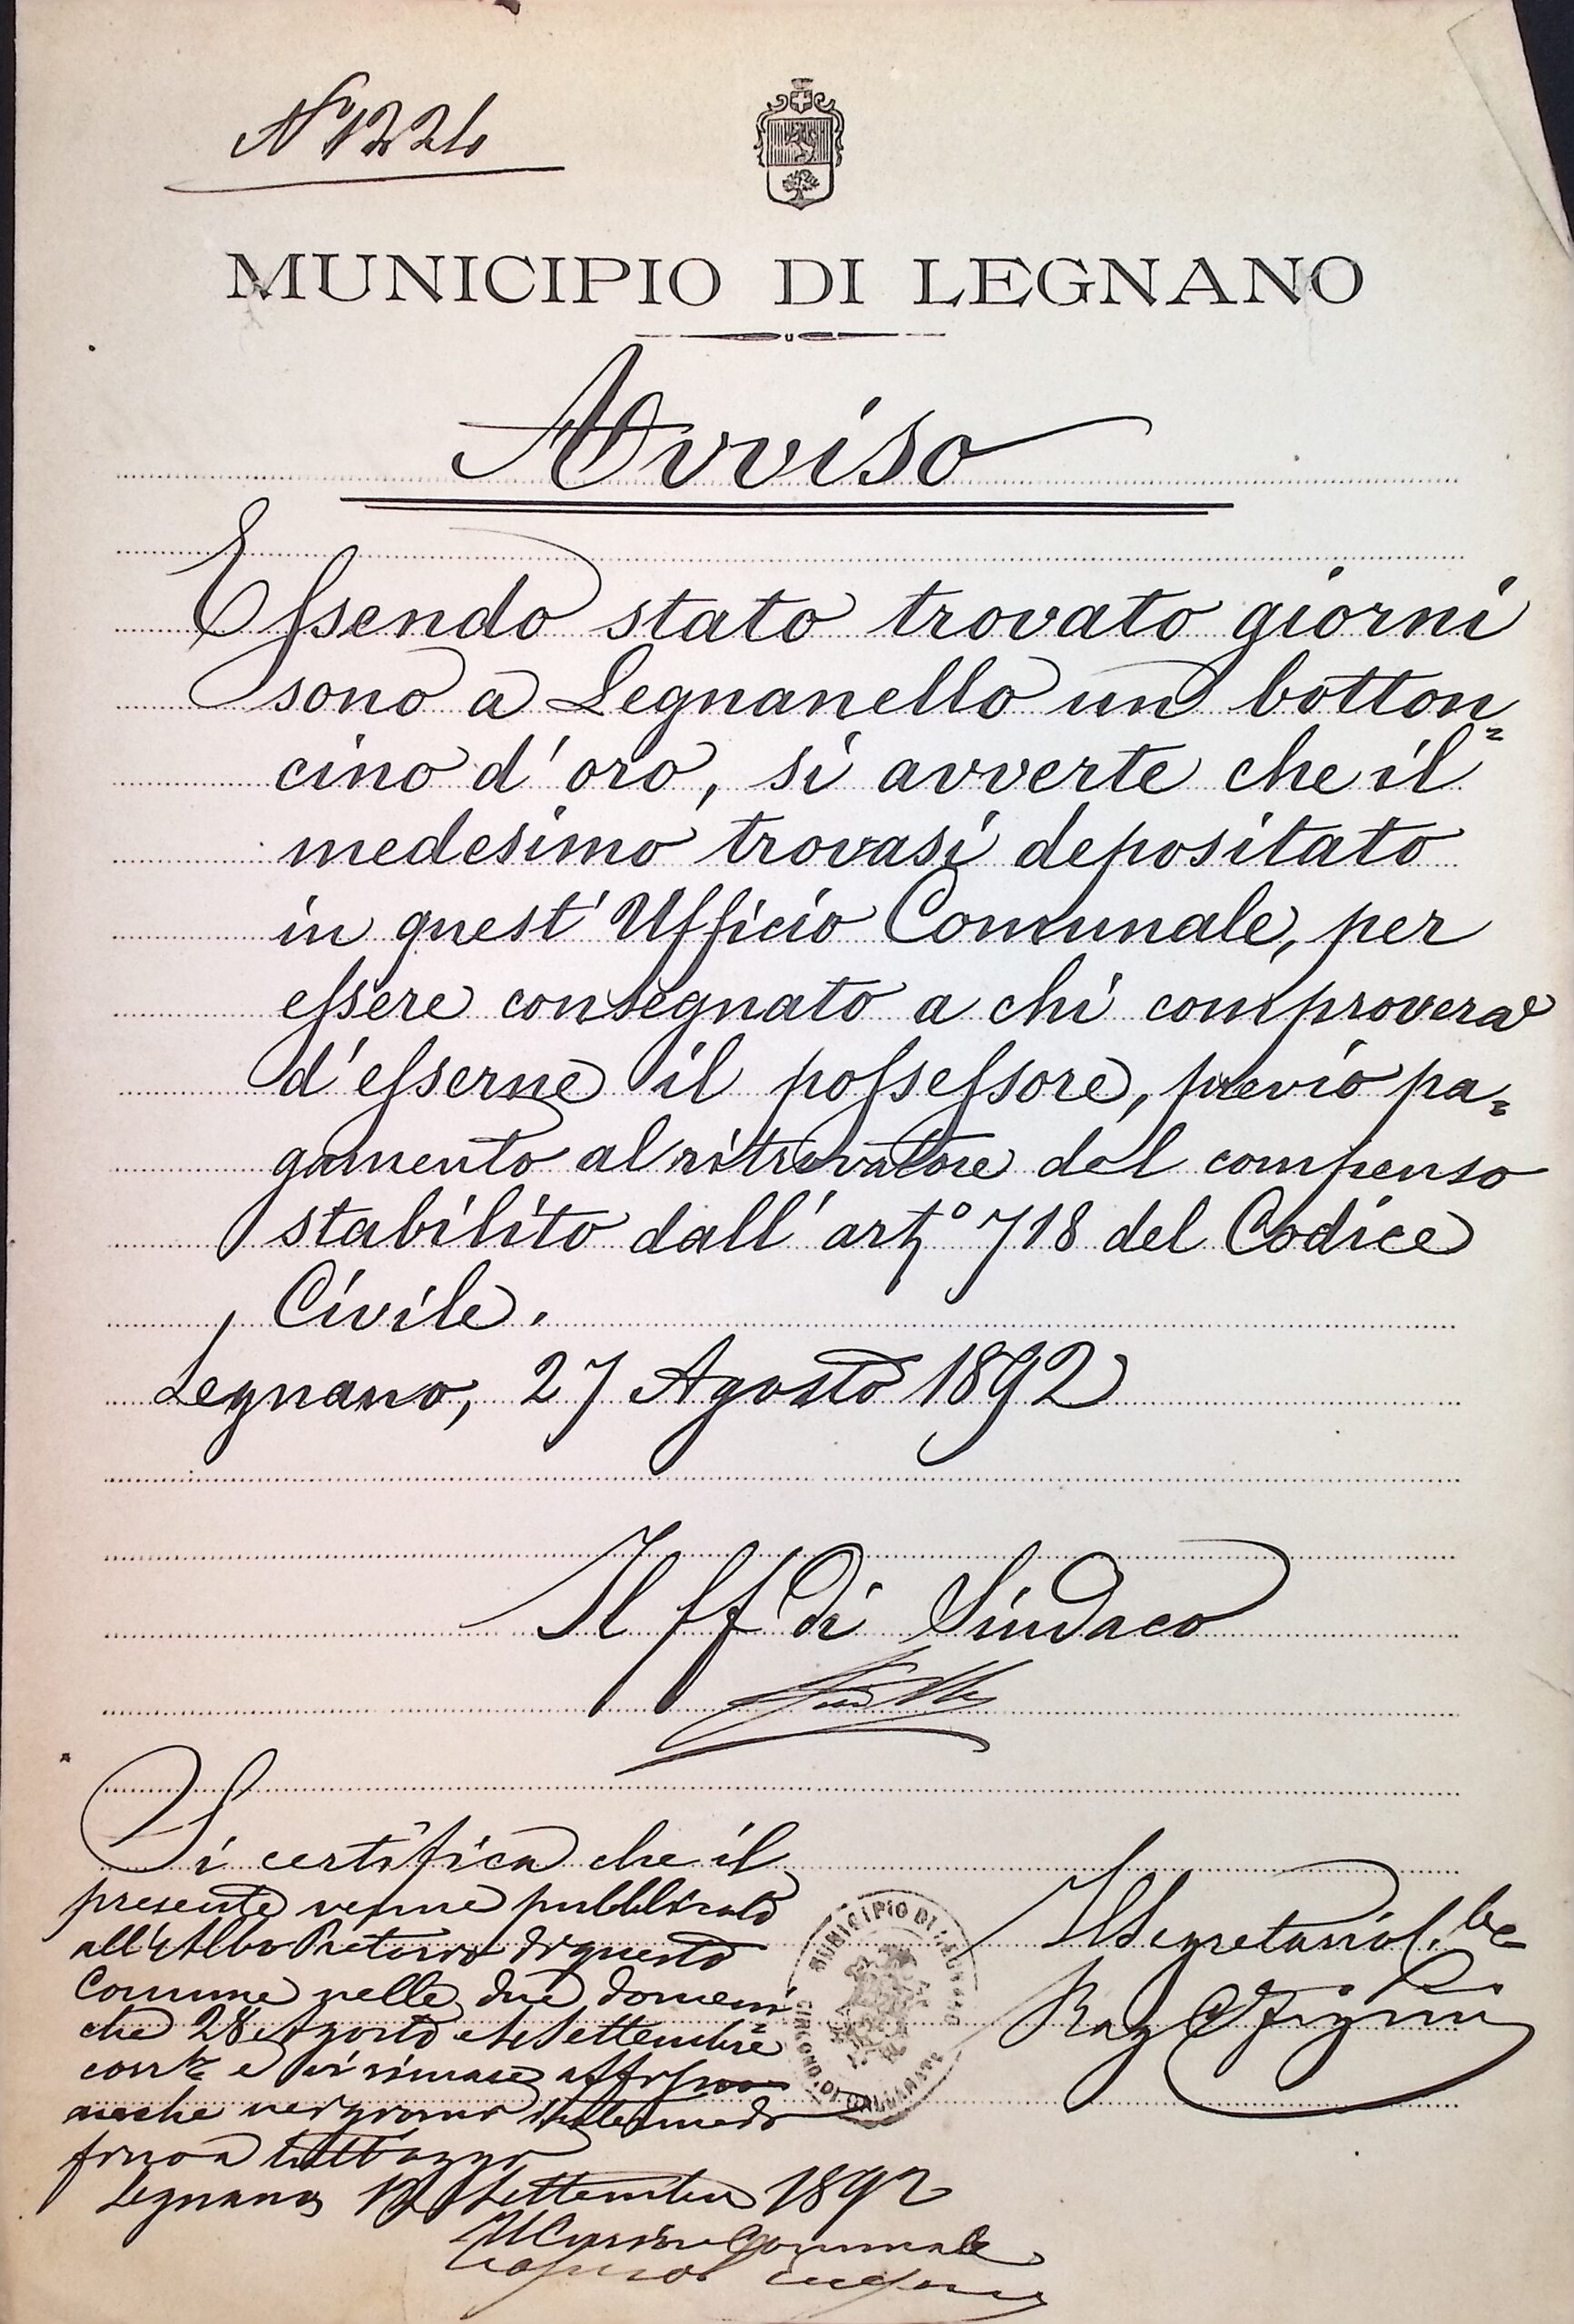 N° 1224
MUNICIPIO DI LEGNANO
Avviso
Essendo stato trovato giorni
sono a Legnanello un botton=
cino d'oro, si avverte che il
medesimo trovasi depositato
in quest'Ufficio Comunale, per
essere consegnato a chi comproverà
d'esserne il possessore, previo pa=
gamento al ritrovatore del compenso
stabilito dall'art° 718 del Codice
Civile.
Legnano, 27 Agosto 1892
Il ff di Sindaco
Si certifica che il
presente venne pubblicato
all'Albo Pretorio di questo
Comune nelle due domeni=
che 28 Agosto e Settembre
corr.te e vi rimase affisso
anche nei giorni intermedi
fino a tutt'oggi
Legnano Settembre 1892
Il Cursore Comunale
MUNICIPIO DI LEGNANO
CIRCOND. DI GALLARATE
Il Segretario
Rag